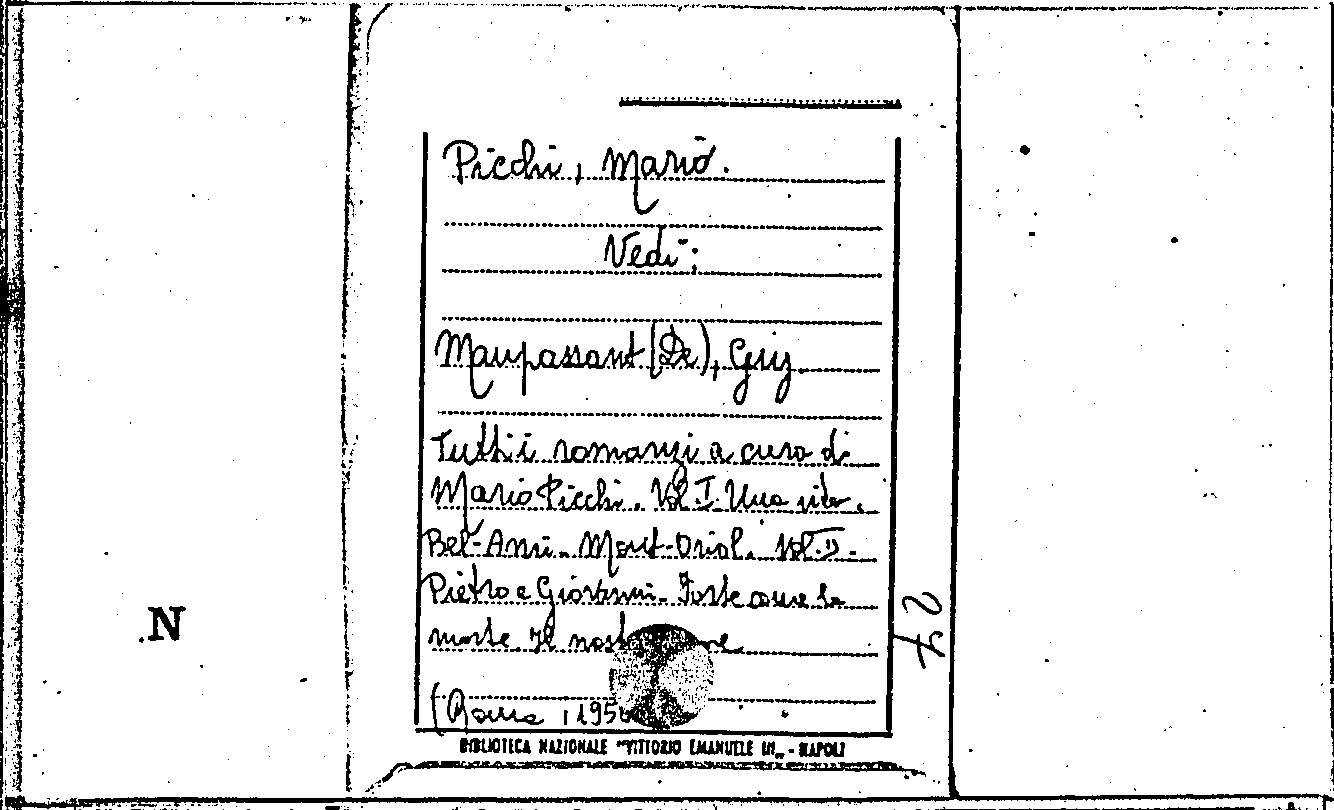 Picchi, Mario.
Vedi:
Maupassant (De), Guy.
Tutti i romanzi a cura di
Mario Picchi. Vol. I. Una vita.
Bel-Ami. Mont-Oriol. Vol. II.
Pietro e Giovanni. Forte come la
morte. Il
(Roma, 195
BIBLIOTECA NAZIONALE "VITTORIO EMANUELE III" - NAPOLI
N